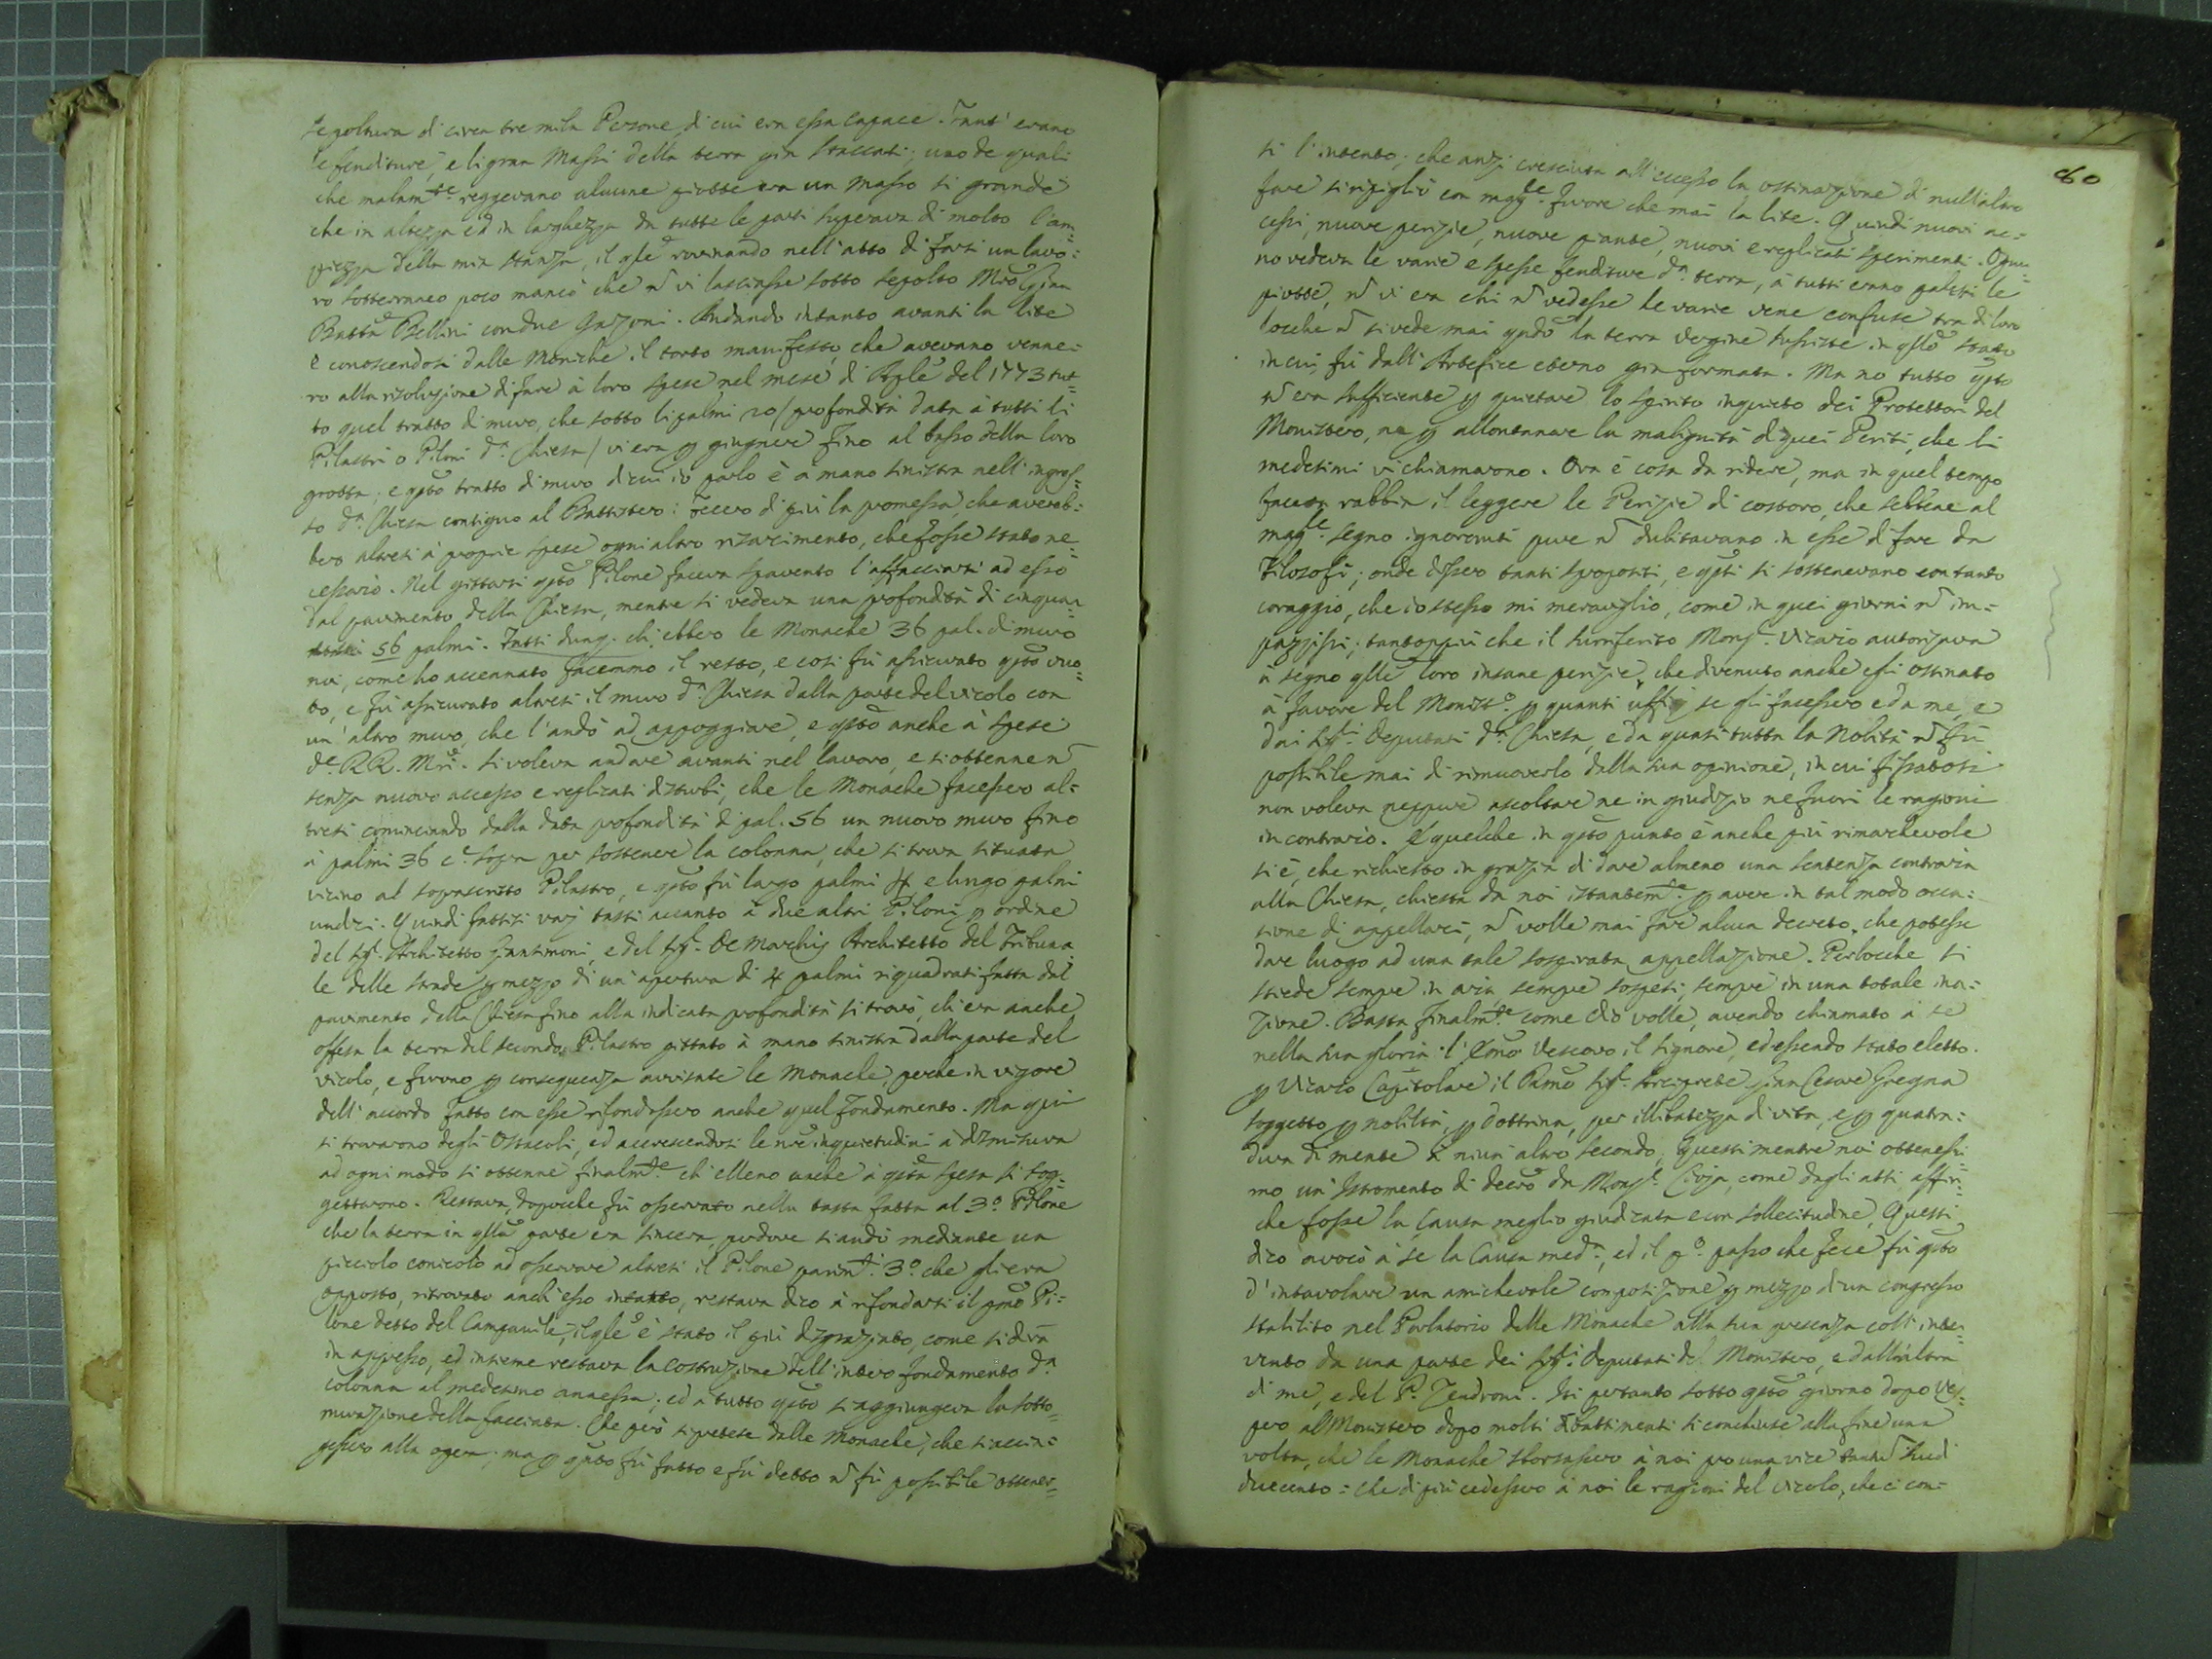 sepoltura di circa tre mila Persone, di cui era essa capace. Tant' erano
le fenditure, e li gran Massi della terra già staccati; uno de quali
che malamte. reggevano alcune piotte era un masso sì grande
che in altezza ed in larghezza da tutte le parti superava di molto l'am=
piezza della mia stanza, il qle rovinando nell'atto di farsi un lavo=
ro sotterraneo poco mancò che ñ vi lasciasse sotto sepolto Mro Gian
Batta Bellini con due Garzoni. Andando intanto avanti la lite
e conoscendosi dalle Moniche il torto manifesto che avevano venne=
ro alla risoluzione di fare à loro spese nel mese di Aple del 1773 tut=
to quel tratto di muro, che sotto li palmi 20 / profondità data à tutti li
Pilastri o Piloni da. Chiesa / vi era p giugnere fino al basso della loro
grotta; e qsto tratto di muro di cui io parlo è à mano sinistra nell'ingres=
so da. Chiesa contiguo al Battistero: fecero di più la promessa, che avereb=
bero altresì à proprie spese ogni altro risarcimento, che fosse stato ne=
cessario. Nel gittarsi qsto Pilone faceva spavento l'affacciarsi ad esso
dal pavimento della Chiesa, mentre si vedeva una profondità di cinquan=
56 palmi. Fatti dunq. ch'ebbero le Monache 36 pal. di muro
noi, come ho accennato facemmo il resto, e così fù assicurato qsto vuo=
to, e fù assicurato altresì il muro da. Chiesa dalla parte del vicolo con
un' altro muro, che l'andò ad appoggiare, e qsto anche à spese
de. RR. Mri. Si voleva andare avanti nel lavoro, e si ottenne ñ
senza nuovo accesso e replicati disturbi, che le Monache facessero al=
tresì cominciando dalla data profondità di pal. 56 un nuovo muro fino
à palmi 36 ca. sopra per sostenere la colonna, che si trova situata
vicino al soprascritto Pilastro, e qsto fù largo palmi 4 e lungo palmi
undici. Quindi fattisi varj tasti accanto à due altri Piloni p ordine
del Sigr. Architetto Giansimoni, e del Sigr. De Marchis Architetto del Tribuna
le delle strade p mezzo di un' apertura di 4 palmi riquadrati fatta dal
pavimento della Chiesa fino alla indicata profondità si trovò, ch'era anche
offesa la terra del secondo Pilastro gittato à mano sinistra dalla parte del
vicolo, e furono p conseguenza avvisate le Monache, perche in vigore
dell'accordo fatto con esse rifondassero anche quel fondamento. Ma qui
si trovarono degli Ostacoli, ed accrescendosi le nre inquietudini à dismisura
ad ogni modo si ottenne finalmte. ch'elleno anche à qsta spesa si sog=
gettarono. Restava, dopoche fù osservato nella tasta fatta al 3.o Pilone
che la terra in qlla parte era sincera, perdove si andò mediante un
picciolo conicolo ad osservare altresì il Pilone parimte. 3.o che gli era
opposto, ritrovato anch'esso intatto, restava dico à rifondarsi il pmo Pi=
lone detto del Campanile, il qle è stato il più disgraziato, come si dirà
in appresso, ed insieme restava la costruzione dell'intero fondamento da.
colonna al medesimo annessa; ed à tutto qsto si aggiungeva la sotto=
murazione della facciata. Che però si pretese dalle Monache, che s'accin=
gessero alla opera; ma p qnto fù fatto e fù detto ñ fù possibile ottener=
80
si l'intento; che anzi cresciuta all'eccesso la ostinazione di null'altro
fare si ripigliò con magle. furore che mai la lite. Quindi nuovi ac=
cessi, nuove perizie, nuove piante, nuovi e replicati sperimenti. Ognu=
no vedeva le varie e spesse fenditure da. terra, à tutti erano palesi le
piotte, ñ vi era chi ñ vedesse le varie vene confuse tra di loro
locche ñ si vede mai qndo la terra vergine sussiste in qllo stato
in cui fù dall'Artefice eterno già formata. Ma no tutto qsto
ñ era sufficiente p quietare lo spirito inquieto dei Protettori del
Monistero, ne p allontanare la malignità di quei Periti, che li
medesimi vi chiamarono. Ora è cosa da ridere, ma in quel tempo
faceva rabbia il leggere le Perizie di costoro, che sebbene al
maggle. segno ignoranti pure ñ dubitavano in esse di fare da
Filosofi; onde dissero tanti spropositi, e qsti si sostenevano con tanto
coraggio, che io stesso mi meraviglio, come in quei giorni ñ im=
pazzissi; tantoppiù che il surriferito Monsr. Vicario autorizava
à segno qlle loro insane perizie, che divenuto anche essi ostinato
à favore del Monistro. p quanti uffizj se gli facessero e da me, e
dai Sigri. Deputati da. Chiesa, e da quasi tutta la Nobiltà ñ fù
possibile mai di rimuoverlo dalla sua opinione, in cui fissatosi
non voleva neppure ascoltare ne in giudizio ne fuori le ragioni
in contrario. E quelche in qsto punto è anche più rimarchevole
si è, che richiesto in grazia di dare almeno una sentenza contraria
alla Chiesa, chiesta da noi istantemte. p avere in tal modo occa=
sione di appellarci, ñ volle mai fare alcun decreto, che potesse
dare luogo ad una tale sospirata appellazione. Perlocche si
stiede sempre in aria sempre sospesi, sempre in una totale ina=
zione. Basta finalmte. come Dio volle, avendo chiamato à se
nella sua gloria l'Emo Vescovo il Signore, ed essendo stato eletto
p Vicario Capitolare il Rmo Sigr. Arciprete Gian Cesare Gregna
soggetto p nobiltà, p dottrina, per illibatezza di vita, e p quatra=
dura di mente à niun altro secondo, Questi mentre noi ottenessi
mo un' Istromento di decro da Monsr. Cioja, come dagli atti, affin=
che fosse la Causa meglio giudicata e con sollecitudine, Questi
dico avocò à se la Causa meda., ed il po. passo che fece fù qsto
d'intavolare un amichevole composizione p mezzo d'un congresso
stabilito nel Parlatorio delle Monache alla sua presenza coll'inter=
vento da una parte dei Sigri. Deputati del Monistero, e dall'altra
di me, e del P. Tendroni. Iti pertanto sotto qsto giorno dopo Ves=
pero al Monistero dopo molti dibattimenti si conchiuse alla fine una
volta, che le Monache sborsassero à noi pro una vice tantũ Scudi
duecento: che di più cedessero à noi le ragioni del vicolo, che ci con=